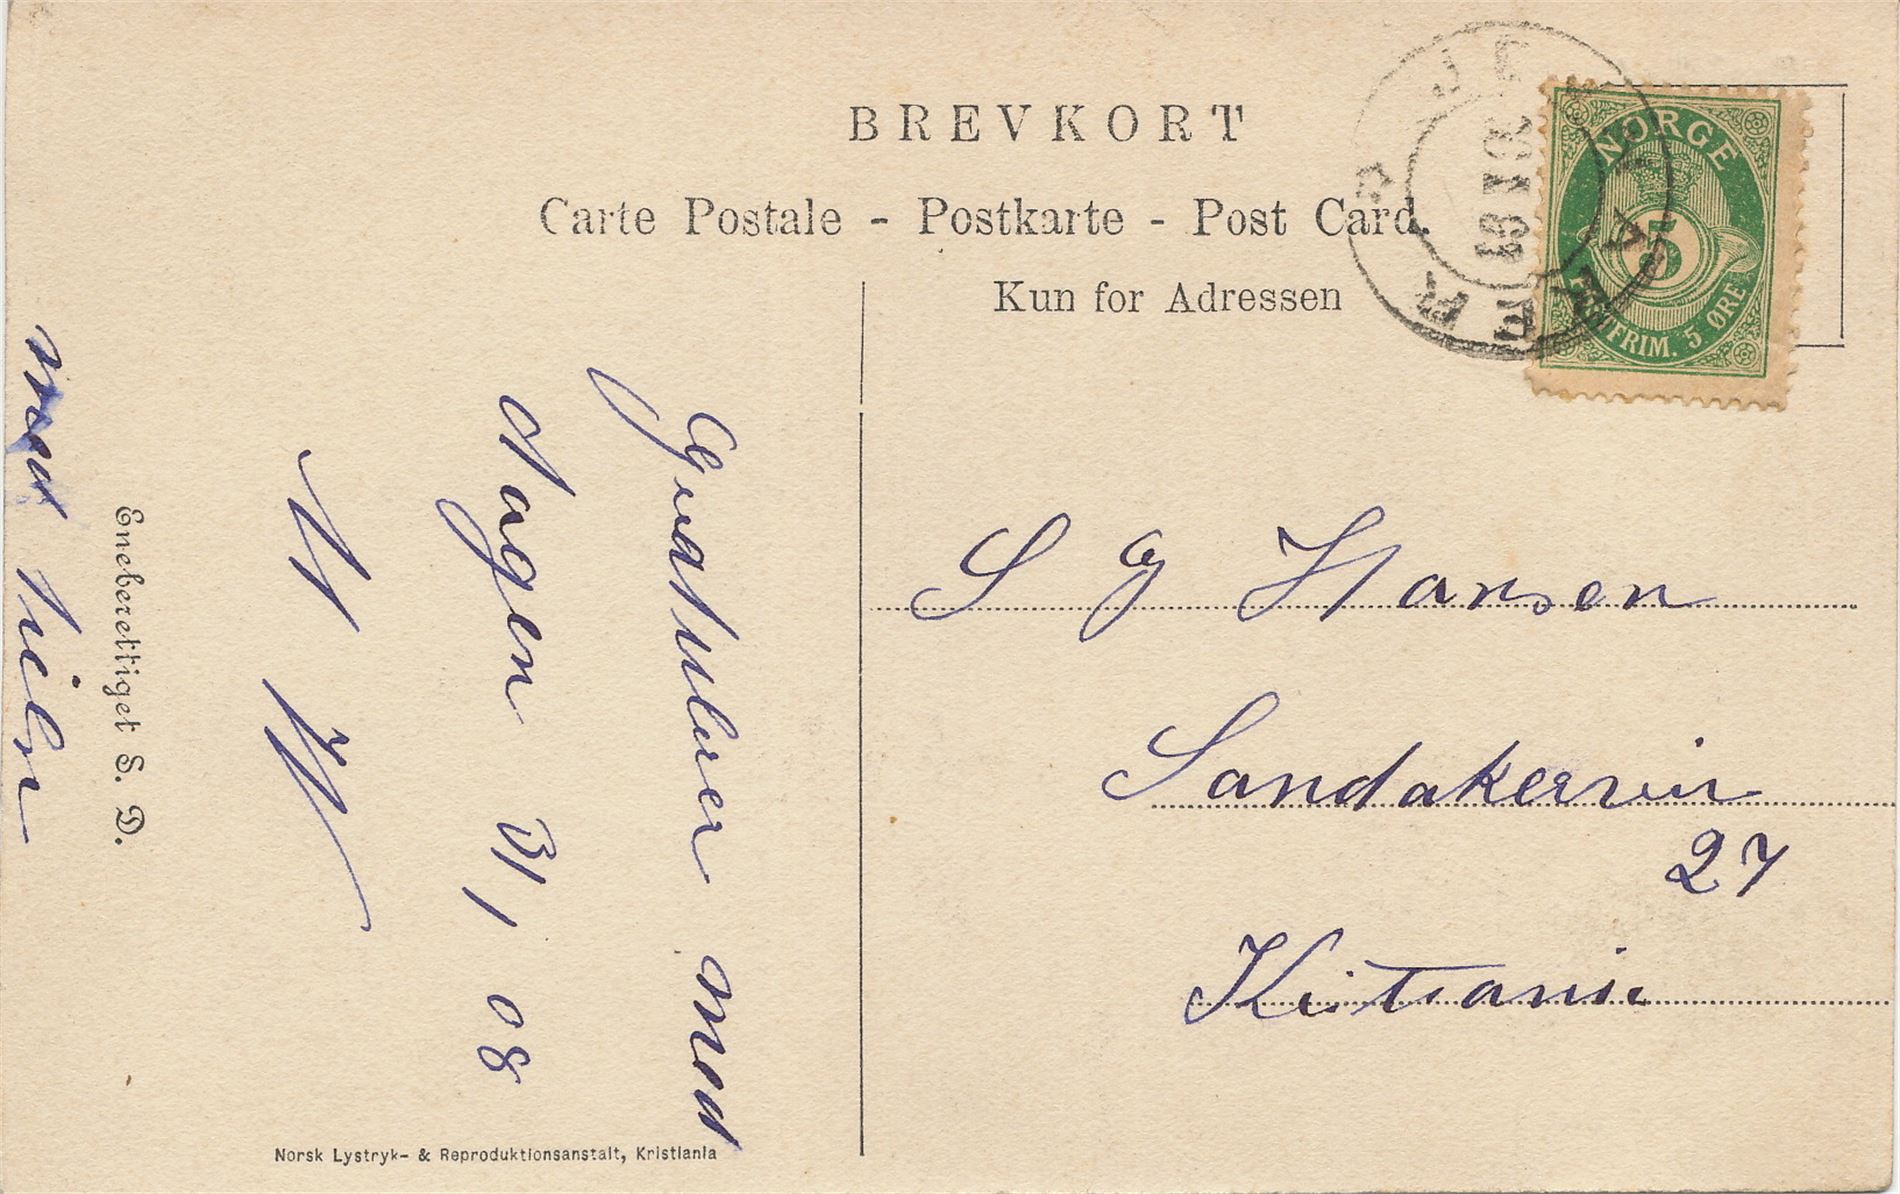 BREVKORT
Carte Postale - Postkarte - Post Card.
Kun for Adressen
NORGE
5
FRIM. 5 ØRE
S G Hansen
Sandakerveien
27
Kristiania
Gratulerer med
dagen 3/1 08
Eneberettiget S. D.
Norsk Lystryk- & Reproduktionsanstalt, Kristiania